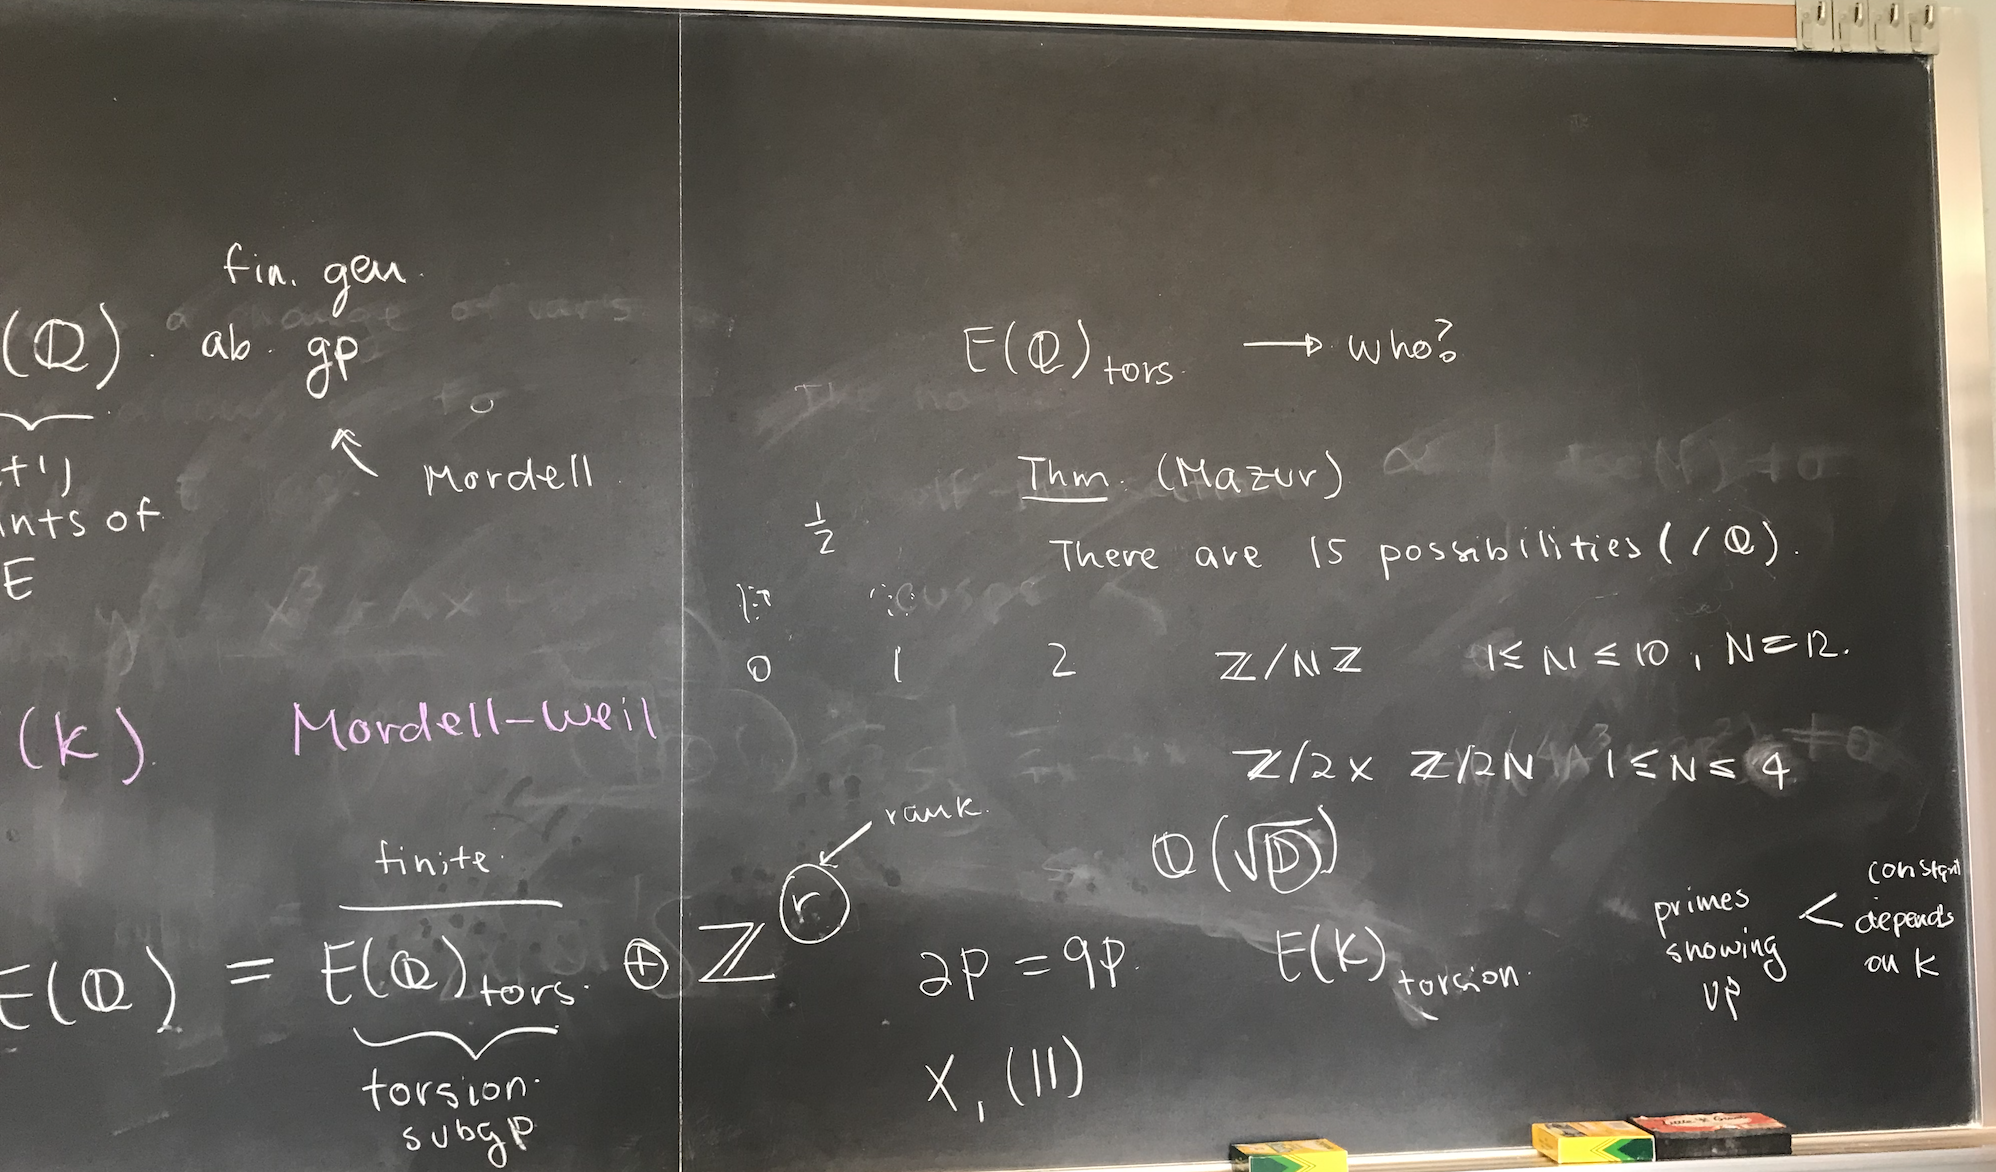 fin. gen.
(ℚ). ab. gp
Mordell
t')
ints of
E
(k). Mordell-Weil
finite.
E(ℚ) = E(ℚ)tors. ⊕ ℤ^r
rank.
torsion.
subgp
E(ℚ)tors. → who?
Thm. (Mazur)
1/2
There are 15 possibilities (/ℚ).
0 1 2
ℤ/Nℤ 1≤N≤10, N=12.
ℤ/2 × ℤ/2N 1≤N≤4
ℚ(√D)
2P = 9P.
E(K)torsion.
primes
showing
up
<
constant
depends
on K
X₁(11)